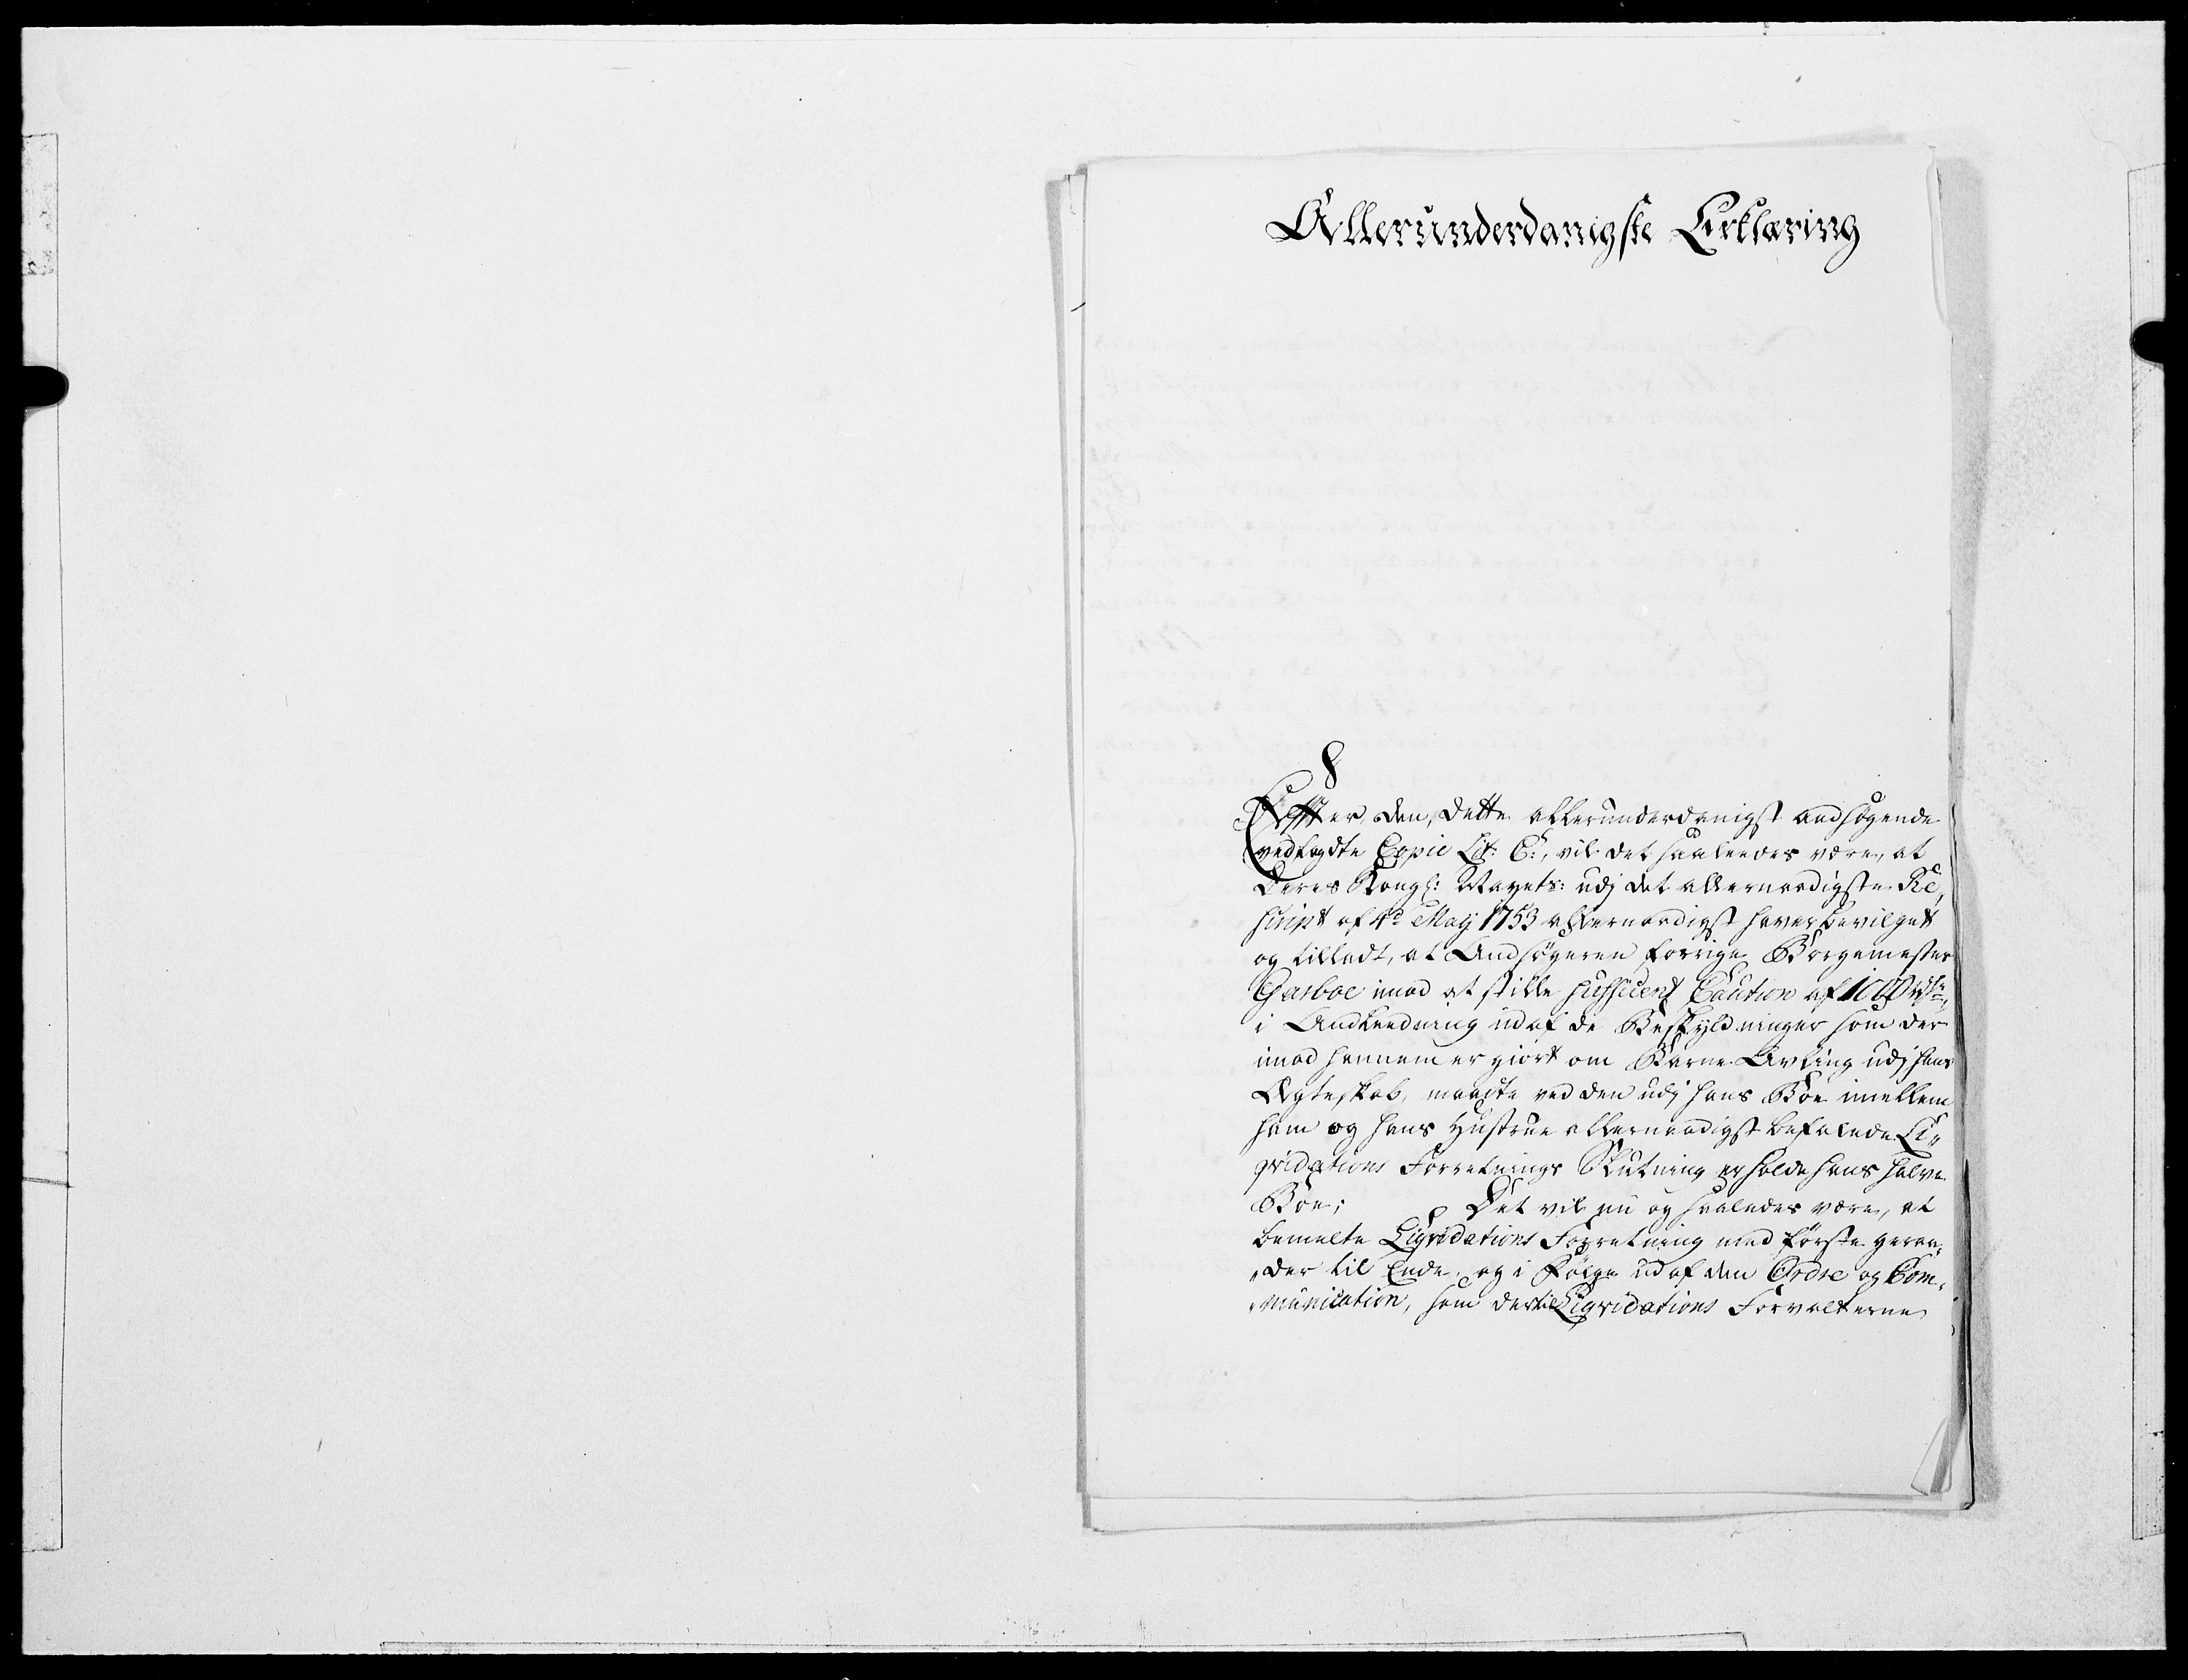 Allerunderdanigste Erklæring
Efter den, dette allerunderdanigst andsøgende
vedlagdte Copie Lit: C:, vil det saaleedes være, at
Deres Kongl: Mayets: udj det allernaadigste Re„
script af 4d May 1753 allernaadigst haver bevilget
og tilladt, at Andsøgeren forrige Borgemester
Garboe imod at stille sufficient Caution af 1000 rdr,
i Andleedning udaf de Beskyldninger som der
imod hannem er giort om Barne Avling udj hans
Ægteskab, maatte ved den udj hans Boe imellem
ham og hans Hustrue allernaadigst befalede Li„
qvidations Forretnings Slutning erholde hans halve
Boe; Det vil nu og saaledes være, at
bemelte Liqvidations Forretning med første geraa„
„der til Ende, og i Følge udaf den Ordre og Com„
„munication, som der til Liqvidations Forvalterne